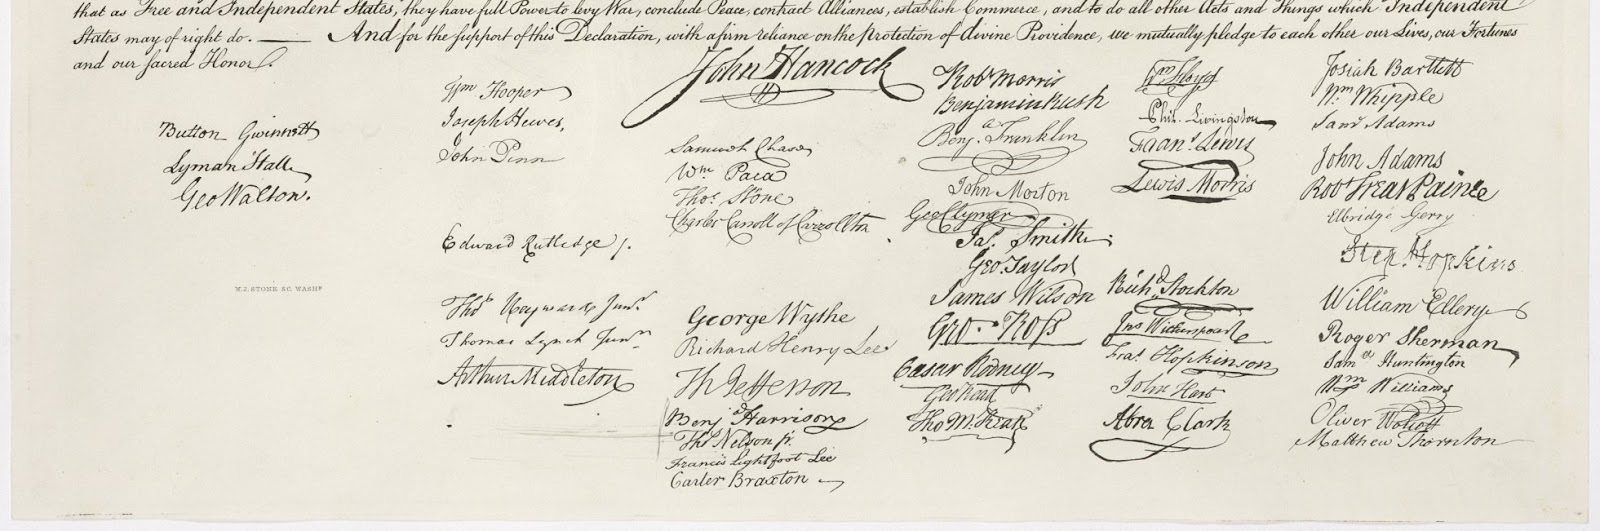 that as Free and Independent States, they have full Power to levy War, conclude Peace, contract Alliances, establish Commerce, and to do all other Acts and Things which Independent
States may of right do. — And for the support of this Declaration, with a firm reliance on the protection of divine Providence, we mutually pledge to each other our Lives, our Fortunes
and our sacred Honor.
Button Gwinnett
Lyman Hall
Geo Walton.
W. J. STONE SC. WASHN
Wm Hooper
Joseph Hewes,
John Penn
Edward Rutledge /.
Thos Heyward Junr.
Thomas Lynch Junr.
Arthur Middleton
John Hancock
Samuel Chase
Wm Paca
Thos. Stone
Charles Carroll of Carrollton
George Wythe
Richard Henry Lee
Th Jefferson
Benja Harrison
Thos Nelson jr.
Francis Lightfoot Lee
Carter Braxton
Robt Morris
Benjamin Rush
Benja. Franklin
John Morton
Geo Clymer
Jas. Smith.
Geo. Taylor
James Wilson
Geo. Ross
Caesar Rodney
Geo Read
Tho M:Kean
Wm Floyd
Phil. Livingston
Frans. Lewis
Lewis Morris
Richd. Stockton
Jno Witherspoon
Fras. Hopkinson
John Hart
Abra Clark
Josiah Bartlett
Wm Whipple
Saml Adams
John Adams
Robt Treat Paine
Elbridge Gerry
Step. Hopkins
William Ellery
Roger Sherman
Samel Huntington
Wm Williams
Oliver Wolcott
Matthew Thornton